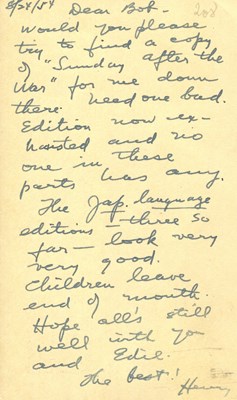 8/24/54 Dear Bob- 208
Would you please
try to find a copy
of "Sunday after the
War" for me down
there. Need one bad.
Edition now ex-
hausted and no
one in these
parts has any.
The Jap. language
editions - three so
far - look very
very good.
Children leave
end of month.
Hope all's still
well with you
and Edie.
The best!
Henry